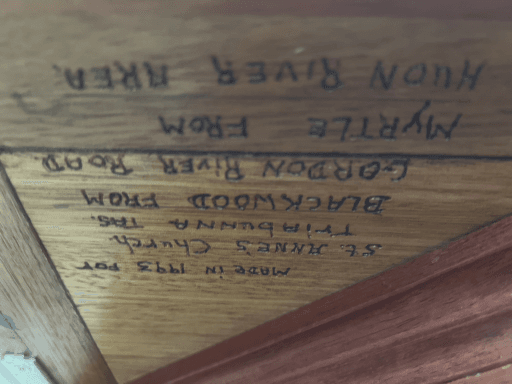 MADE IN 1993 FOR
St. ANNE'S Church
TRIABUNNA TAS.
BLACKWOOD FROM
GORDON RIVER ROAD.
MYRTLE FROM
HUON RIVER AREA.